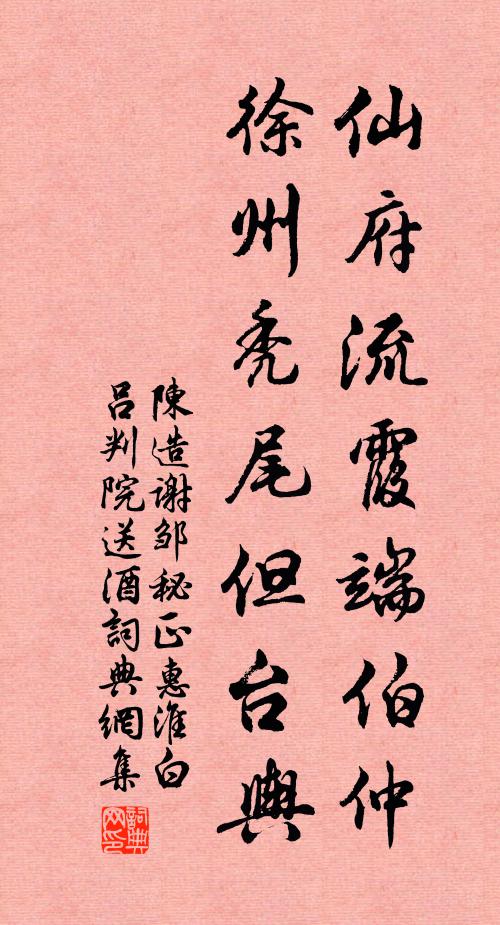 仙府流霞端伯仲
徐州秃尾但台輿
陳造謝邹秘正惠淮白
吕判院送酒詞典網集
詞典网印